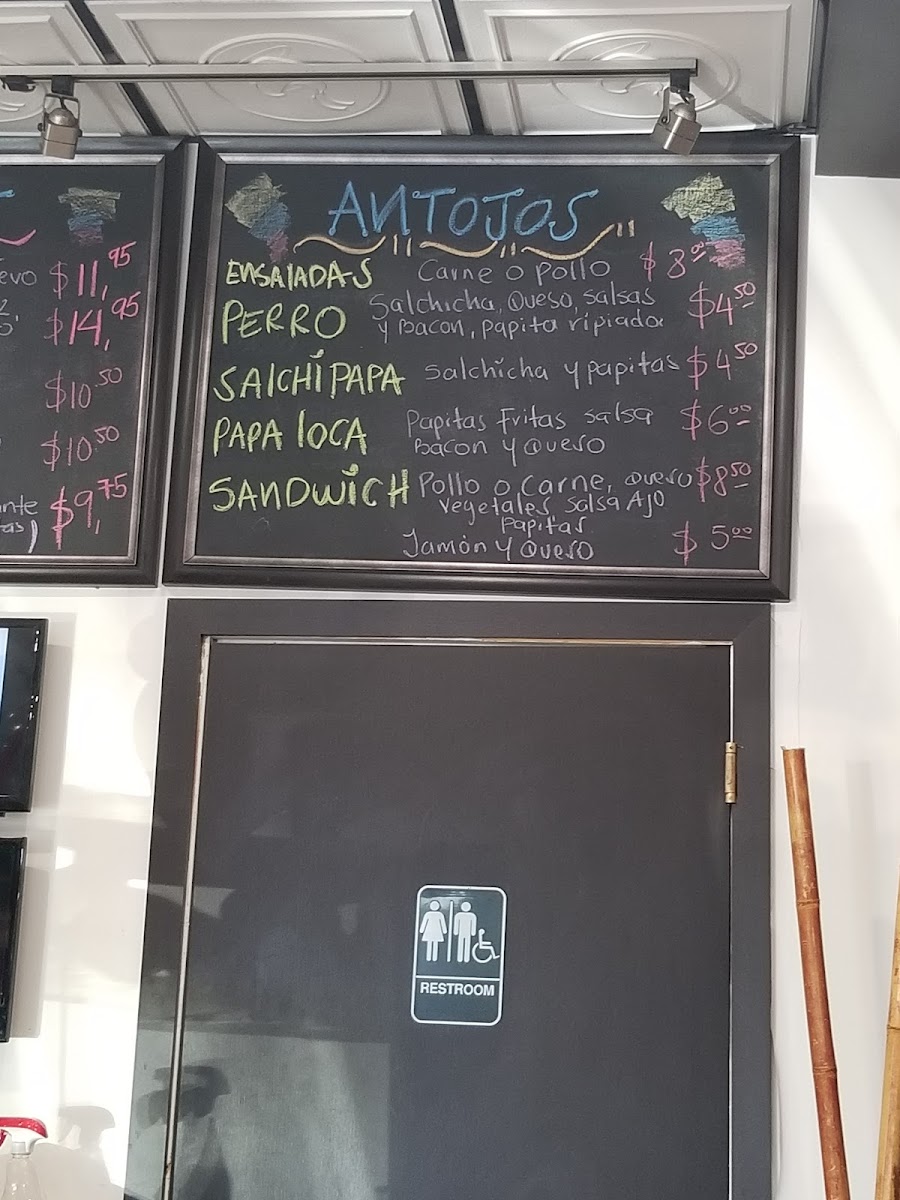 evo $11,95
$14,95
$10.50
$10.50
nte $9,75
tas)
ANTOJOS
ENSALADAS Carne o pollo $8.00
PERRO Salchicha, Queso, Salsas $4.50
y bacon, papita ripiada
SALCHIPAPA Salchicha y papitas $4.50
PAPA LOCA Papitas Fritas salsa $6.00
Bacon y Queso
SANDWICH Pollo o Carne, Queso $8.50
vegetales, salsa Ajo
papitas
Jamón y Queso $5.00
RESTROOM